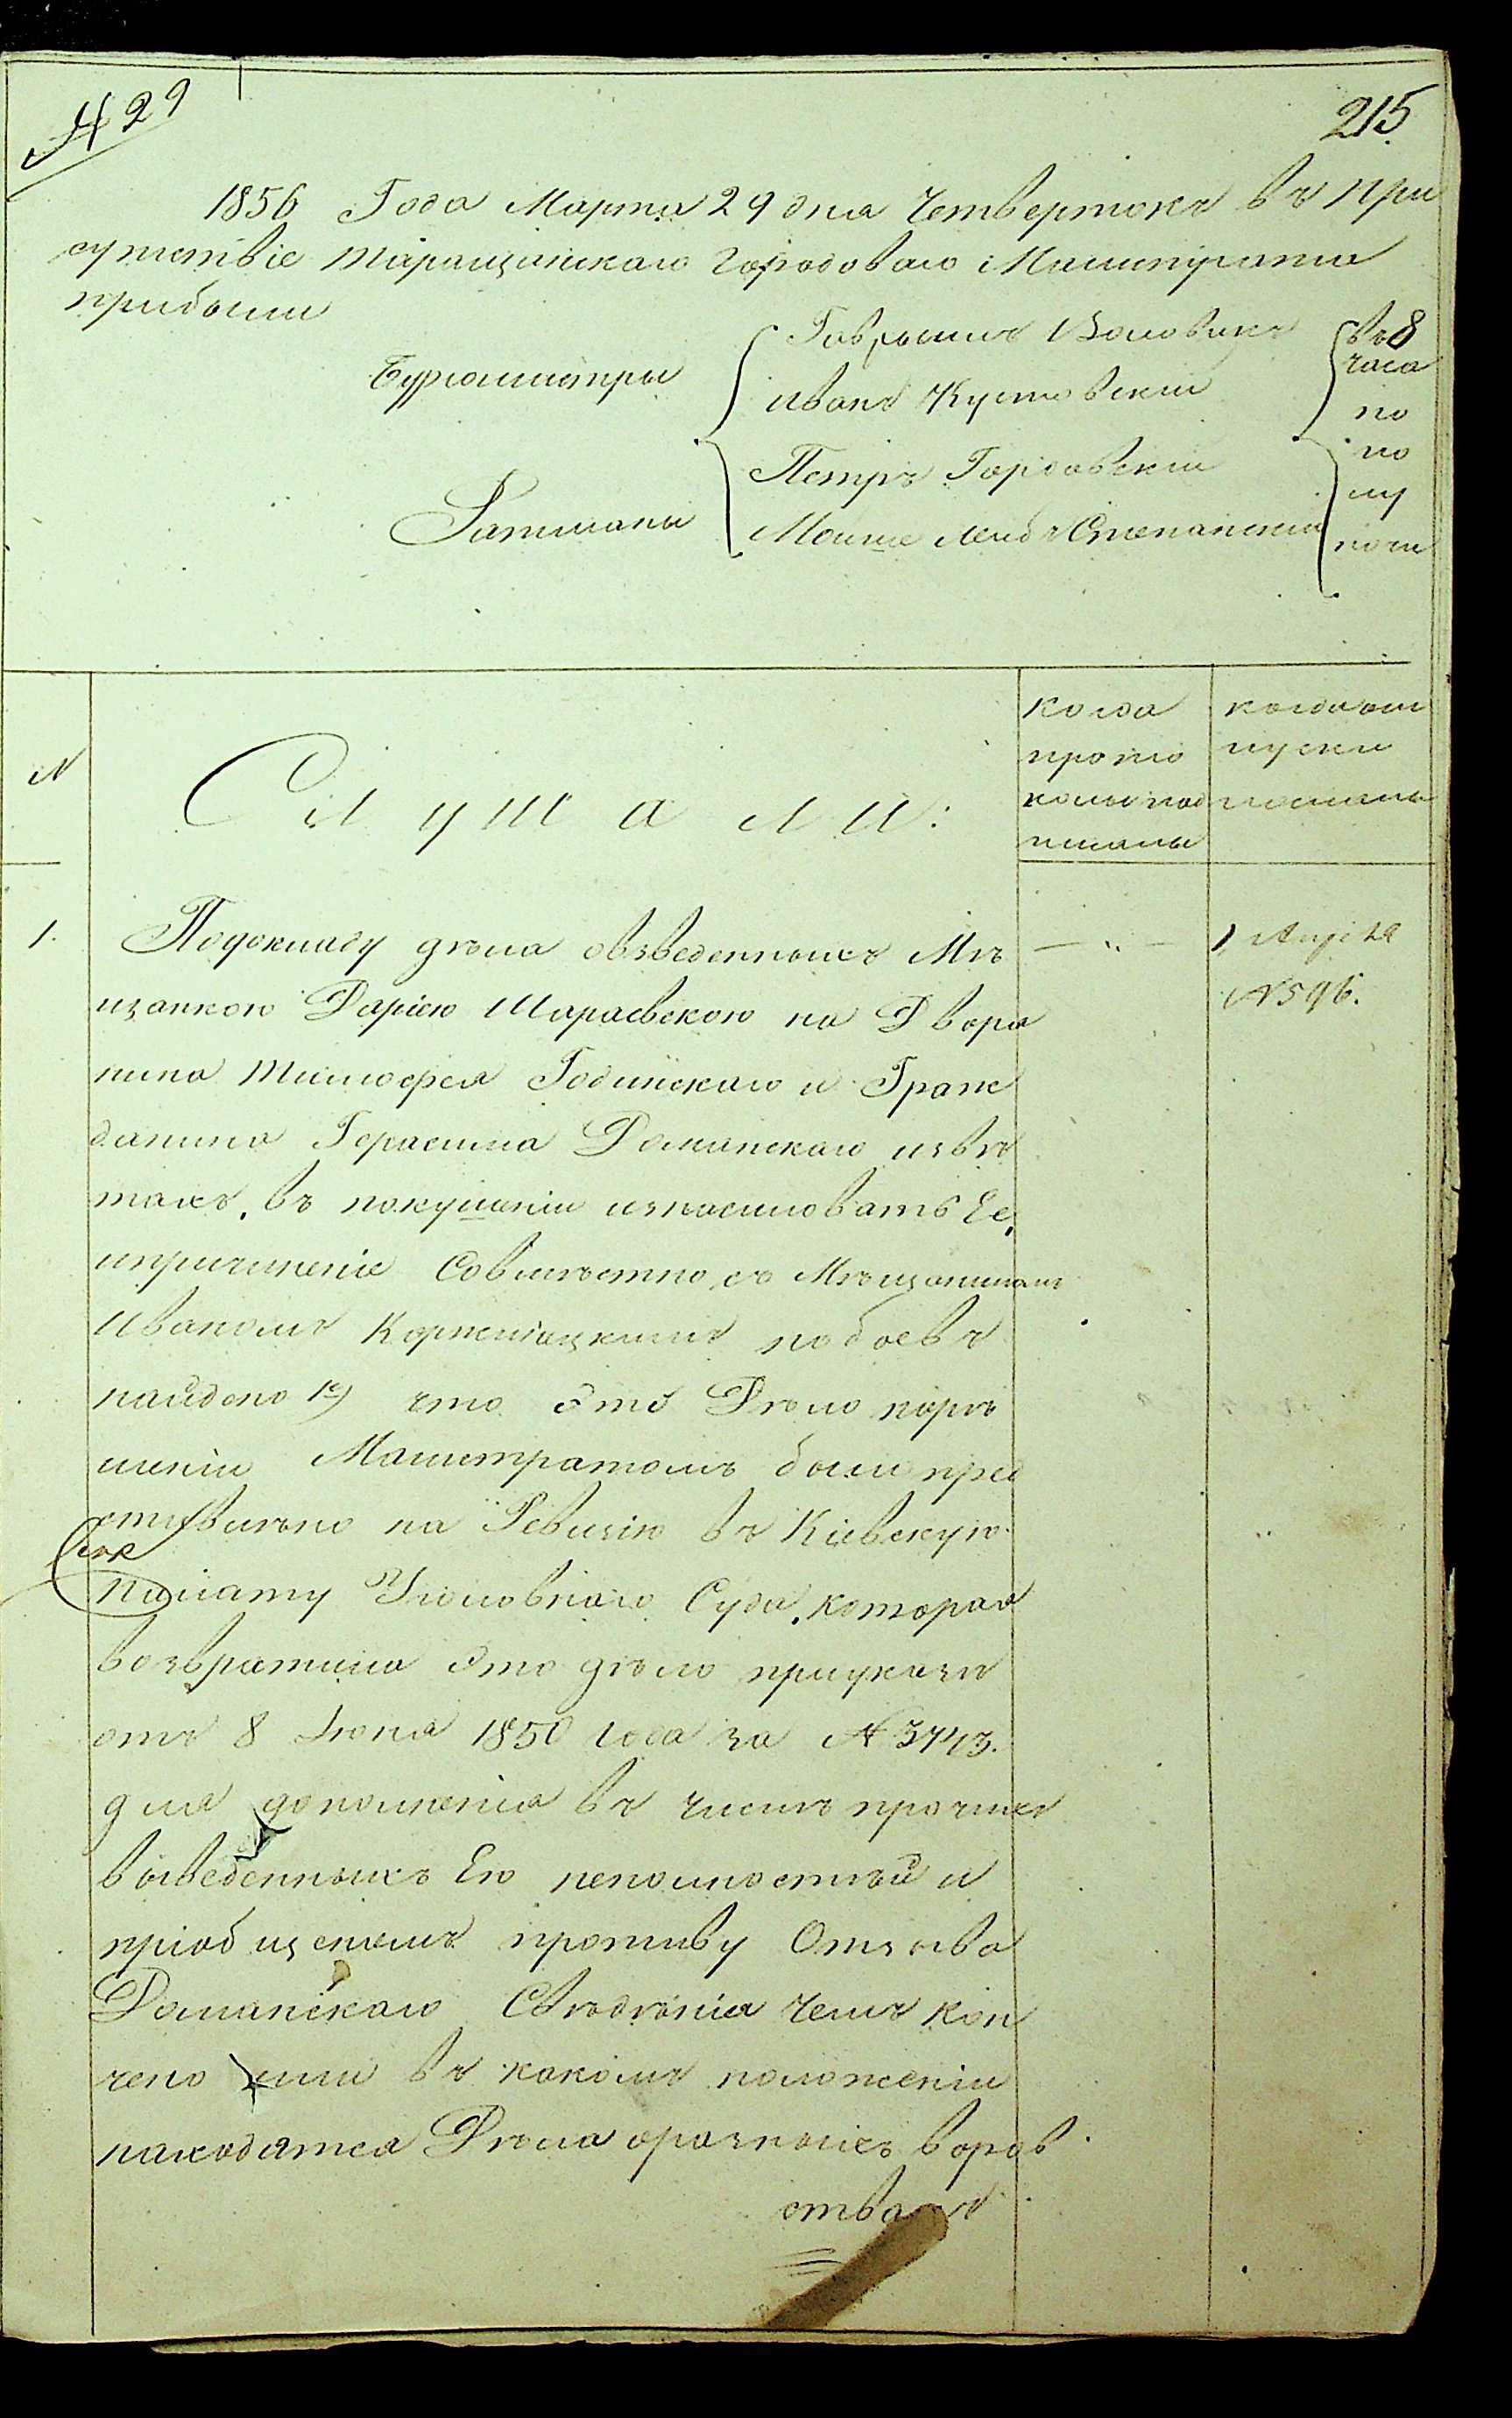 № 29
215.
1856 Года Марта 29 дня Четвертокъ въ при
сутствіе Таращанскаго Городоваго Магистрата
прибыли
Бургомистры
Гаврыилъ Воловикъ
Иванъ Кустовскій
Ратманы
Петръ Гордовскій
Моише Лейбъ Степанскій
въ 8
часа
по
по
лу
ночи
№
Слушали:
когда
прото
колы под
писаны
когда от
пуски
посланы
1.
По докладу дѣла овзведенныхъ Мѣ
— " —
1 Апреля
№ 596.
щанкою Даріею Шараевскою на Дворя
нина Тимофея Годинскаго и Граж
данина Герасима Доманскаго извѣ
тахъ, въ покушеніи изнасиловать Ее,
и причиненіе Совмѣстно съ Мѣщаниномъ
Иваномъ побоевъ
найдено 1е) что это Дѣло порѣ
шеніи Магистратомъ были пред
ставлѣно на Ревизію въ Кіевскую
Палату Уголовнаго Суда, которая
возвратила это дѣло при указѣ
отъ 8 Іюня 1850 года за № 3743.
для дополненія въ числѣ прочихъ
выведенныхъ Ею неполностѣй и
пріобщеніемъ противу Отзыва
Доманскаго Свѣдѣнія Чемъ кон
чено или въ какомъ положеніи
находятся Дѣла оразныхъ воров
ствахъ